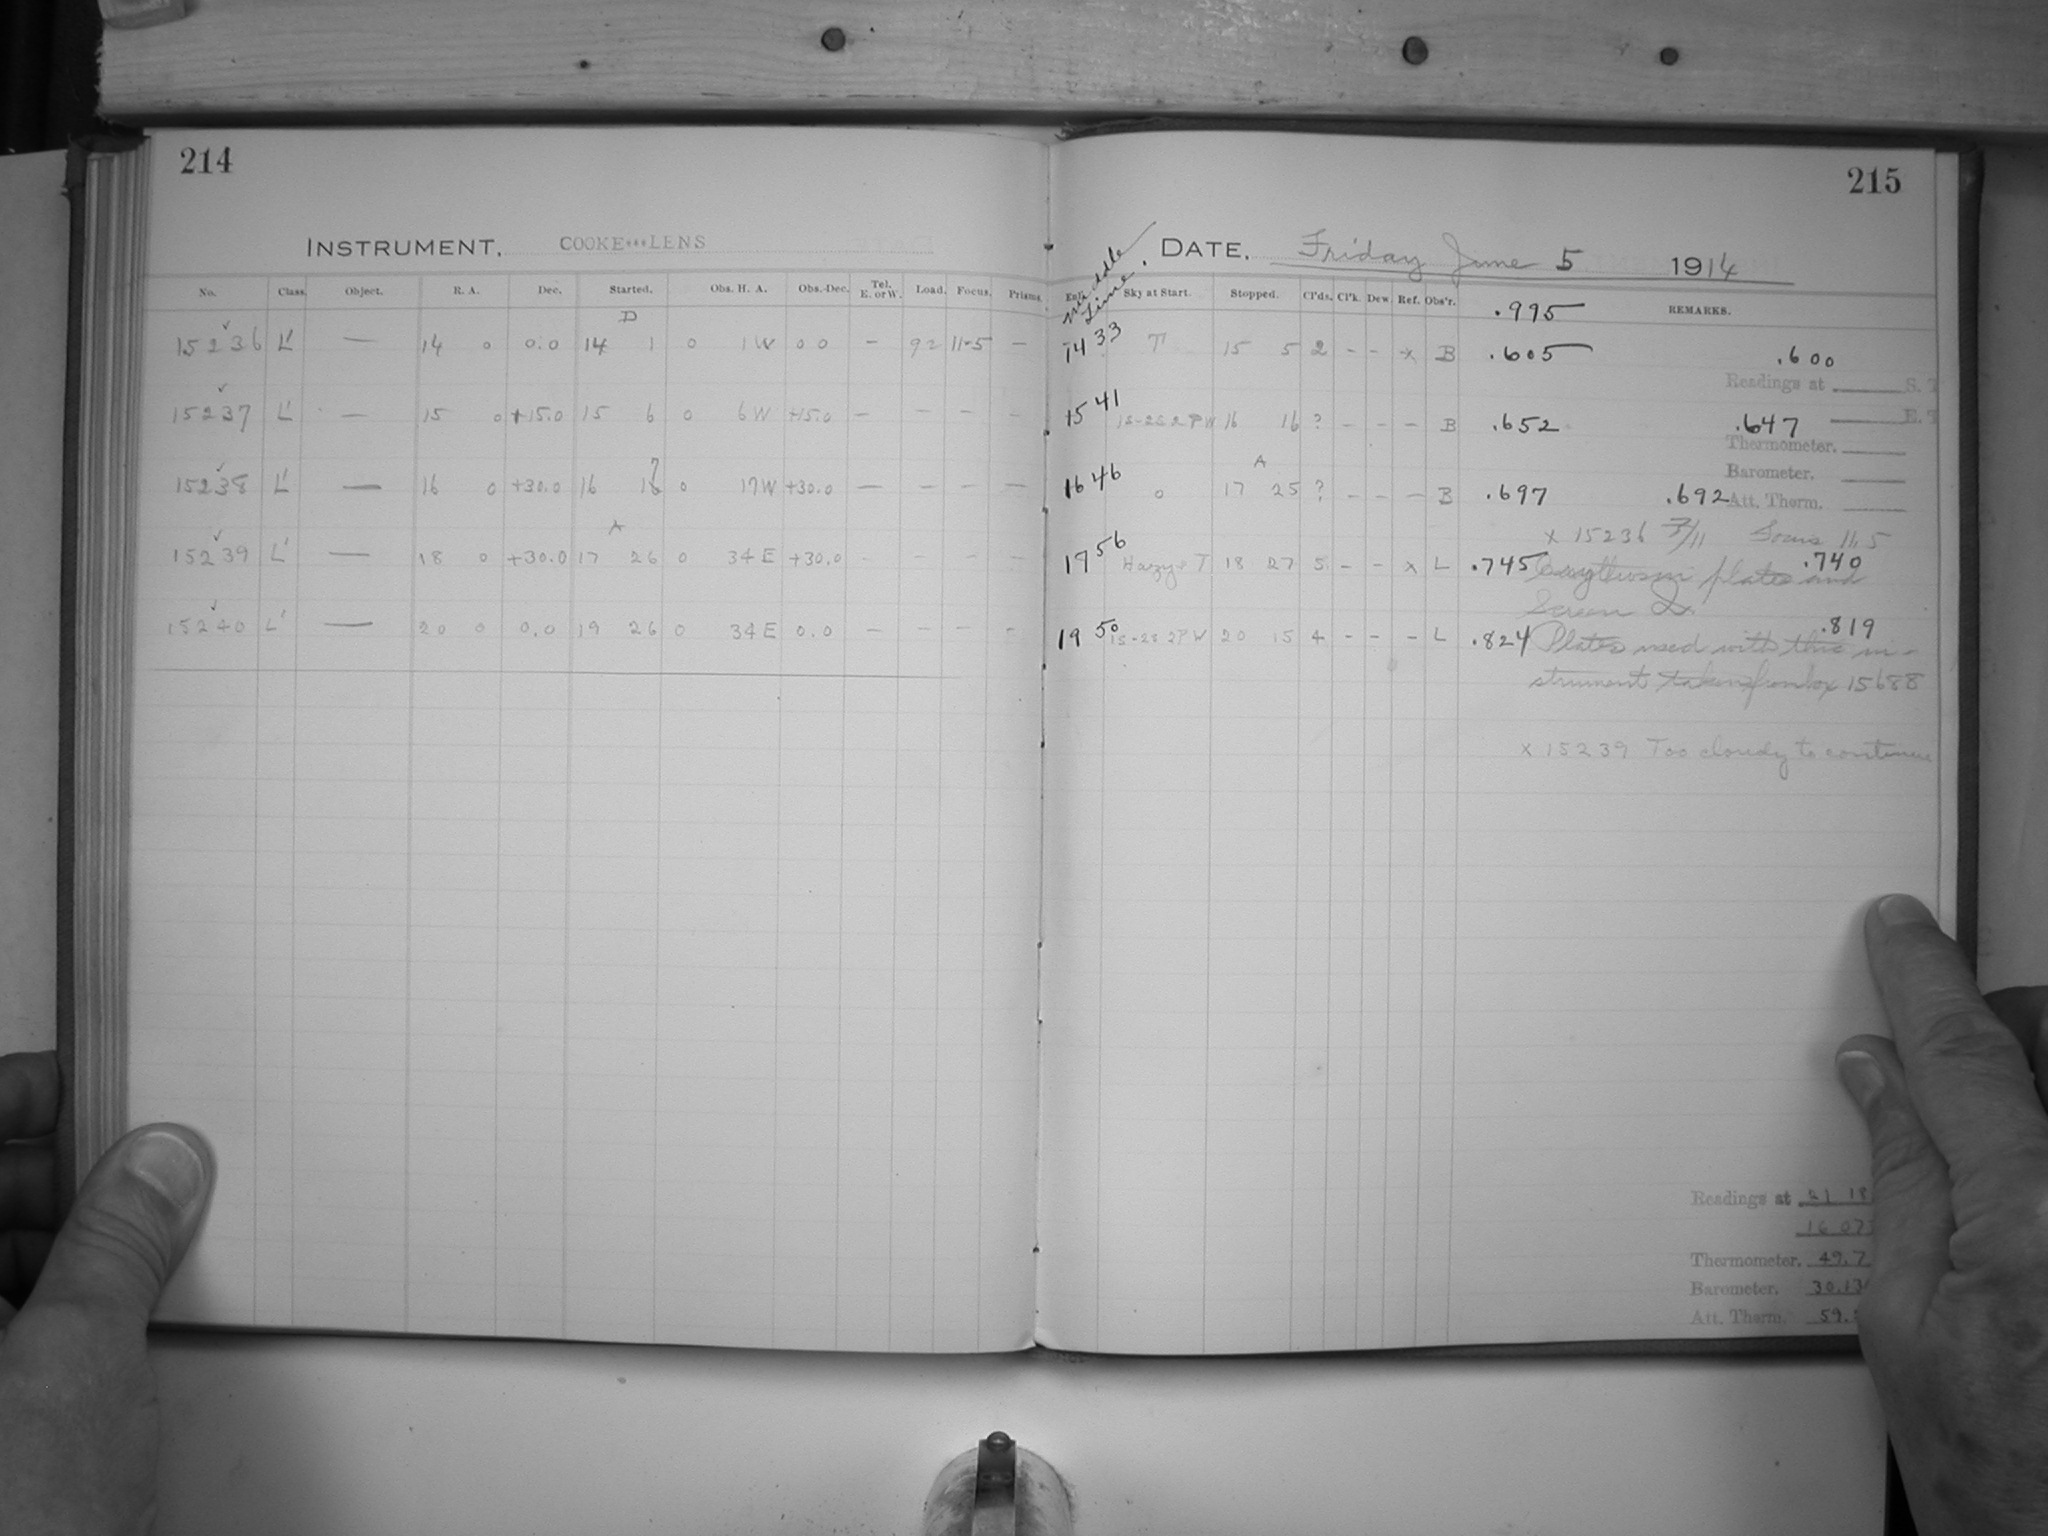 214
215
INSTRUMENT, COOKE***LENS
DATE, Friday June 5 1914
No. Class. Object. R. A. Dec. Started. Obs. H. A. Obs.-Dec. Tel. E. or W. Load. Focus. Prisms.
Middle Time. Sky at Start. Stopped. Cl'ds. Cl'k. Dew. Ref. Obs'r. REMARKS.
.995
D
15236 L' — 14 0 0.0 14 1 0 1W 0 0 – 92 11-5 –
14 33 T 15 5 2 – – x B .605 .600
Readings at S.
15237 L' — 15 0 +15.0 15 6 0 6W +15.0 – – – –
15 41 1S-2S 2PW 16 16 ? – – – B .652 .647
E.
Thermometer.
Barometer.
15238 L' — 16 0 +30.0 16 16 ? 0 17W +30.0 – – – –
A
16 46 0 17 25 ? – – – B .697 .692
Att. Therm.
x 15236 7/11 Focus 11.5
A
15239 L' — 18 0 +30.0 17 26 0 34E +30.0 – – – –
17 56 Hazy T 18 27 5 – – x L .745 .740
plates and
Screen
15240 L' — 20 0 0.0 19 26 0 34E 0.0 – – – –
19 50 1S-2S 2PW 20 15 4 – – – L .824 .819
Plates used with this in-
strument taken from box 15688
x 15239 Too cloudy to continue
Readings at 21 18
16 07
Thermometer. 49.7
Barometer. 30.13
Att. Therm. 59.